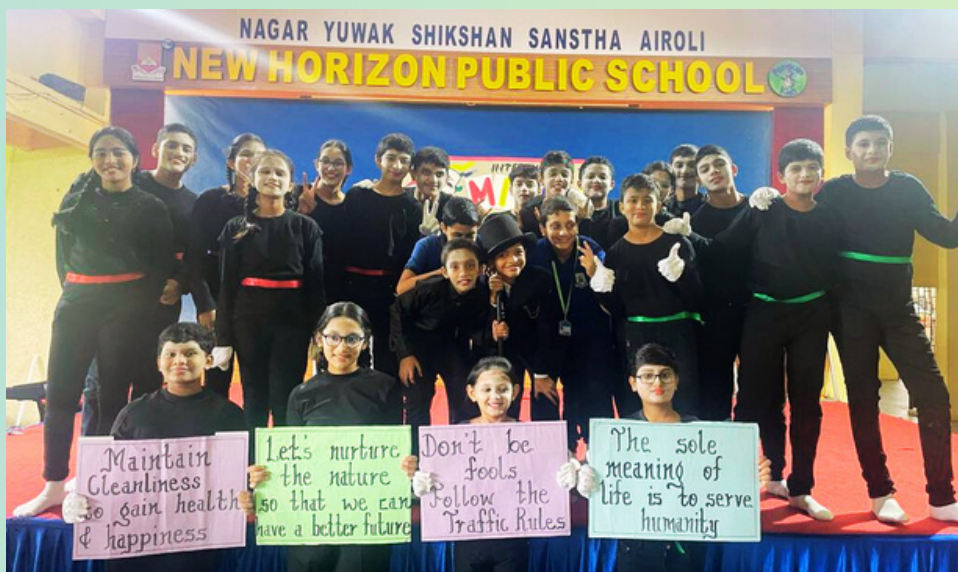 NAGAR YUWAK SHIKSHAN SANSTHA AIROLI
NEW HORIZON PUBLIC SCHOOL
INTER
M
Maintain
Cleanliness
to gain health
& happiness
Let's nurture
the nature
so that we can
have a better future
Don't be
fools
Follow the
Traffic Rules
The sole
meaning of
life is to serve
humanity